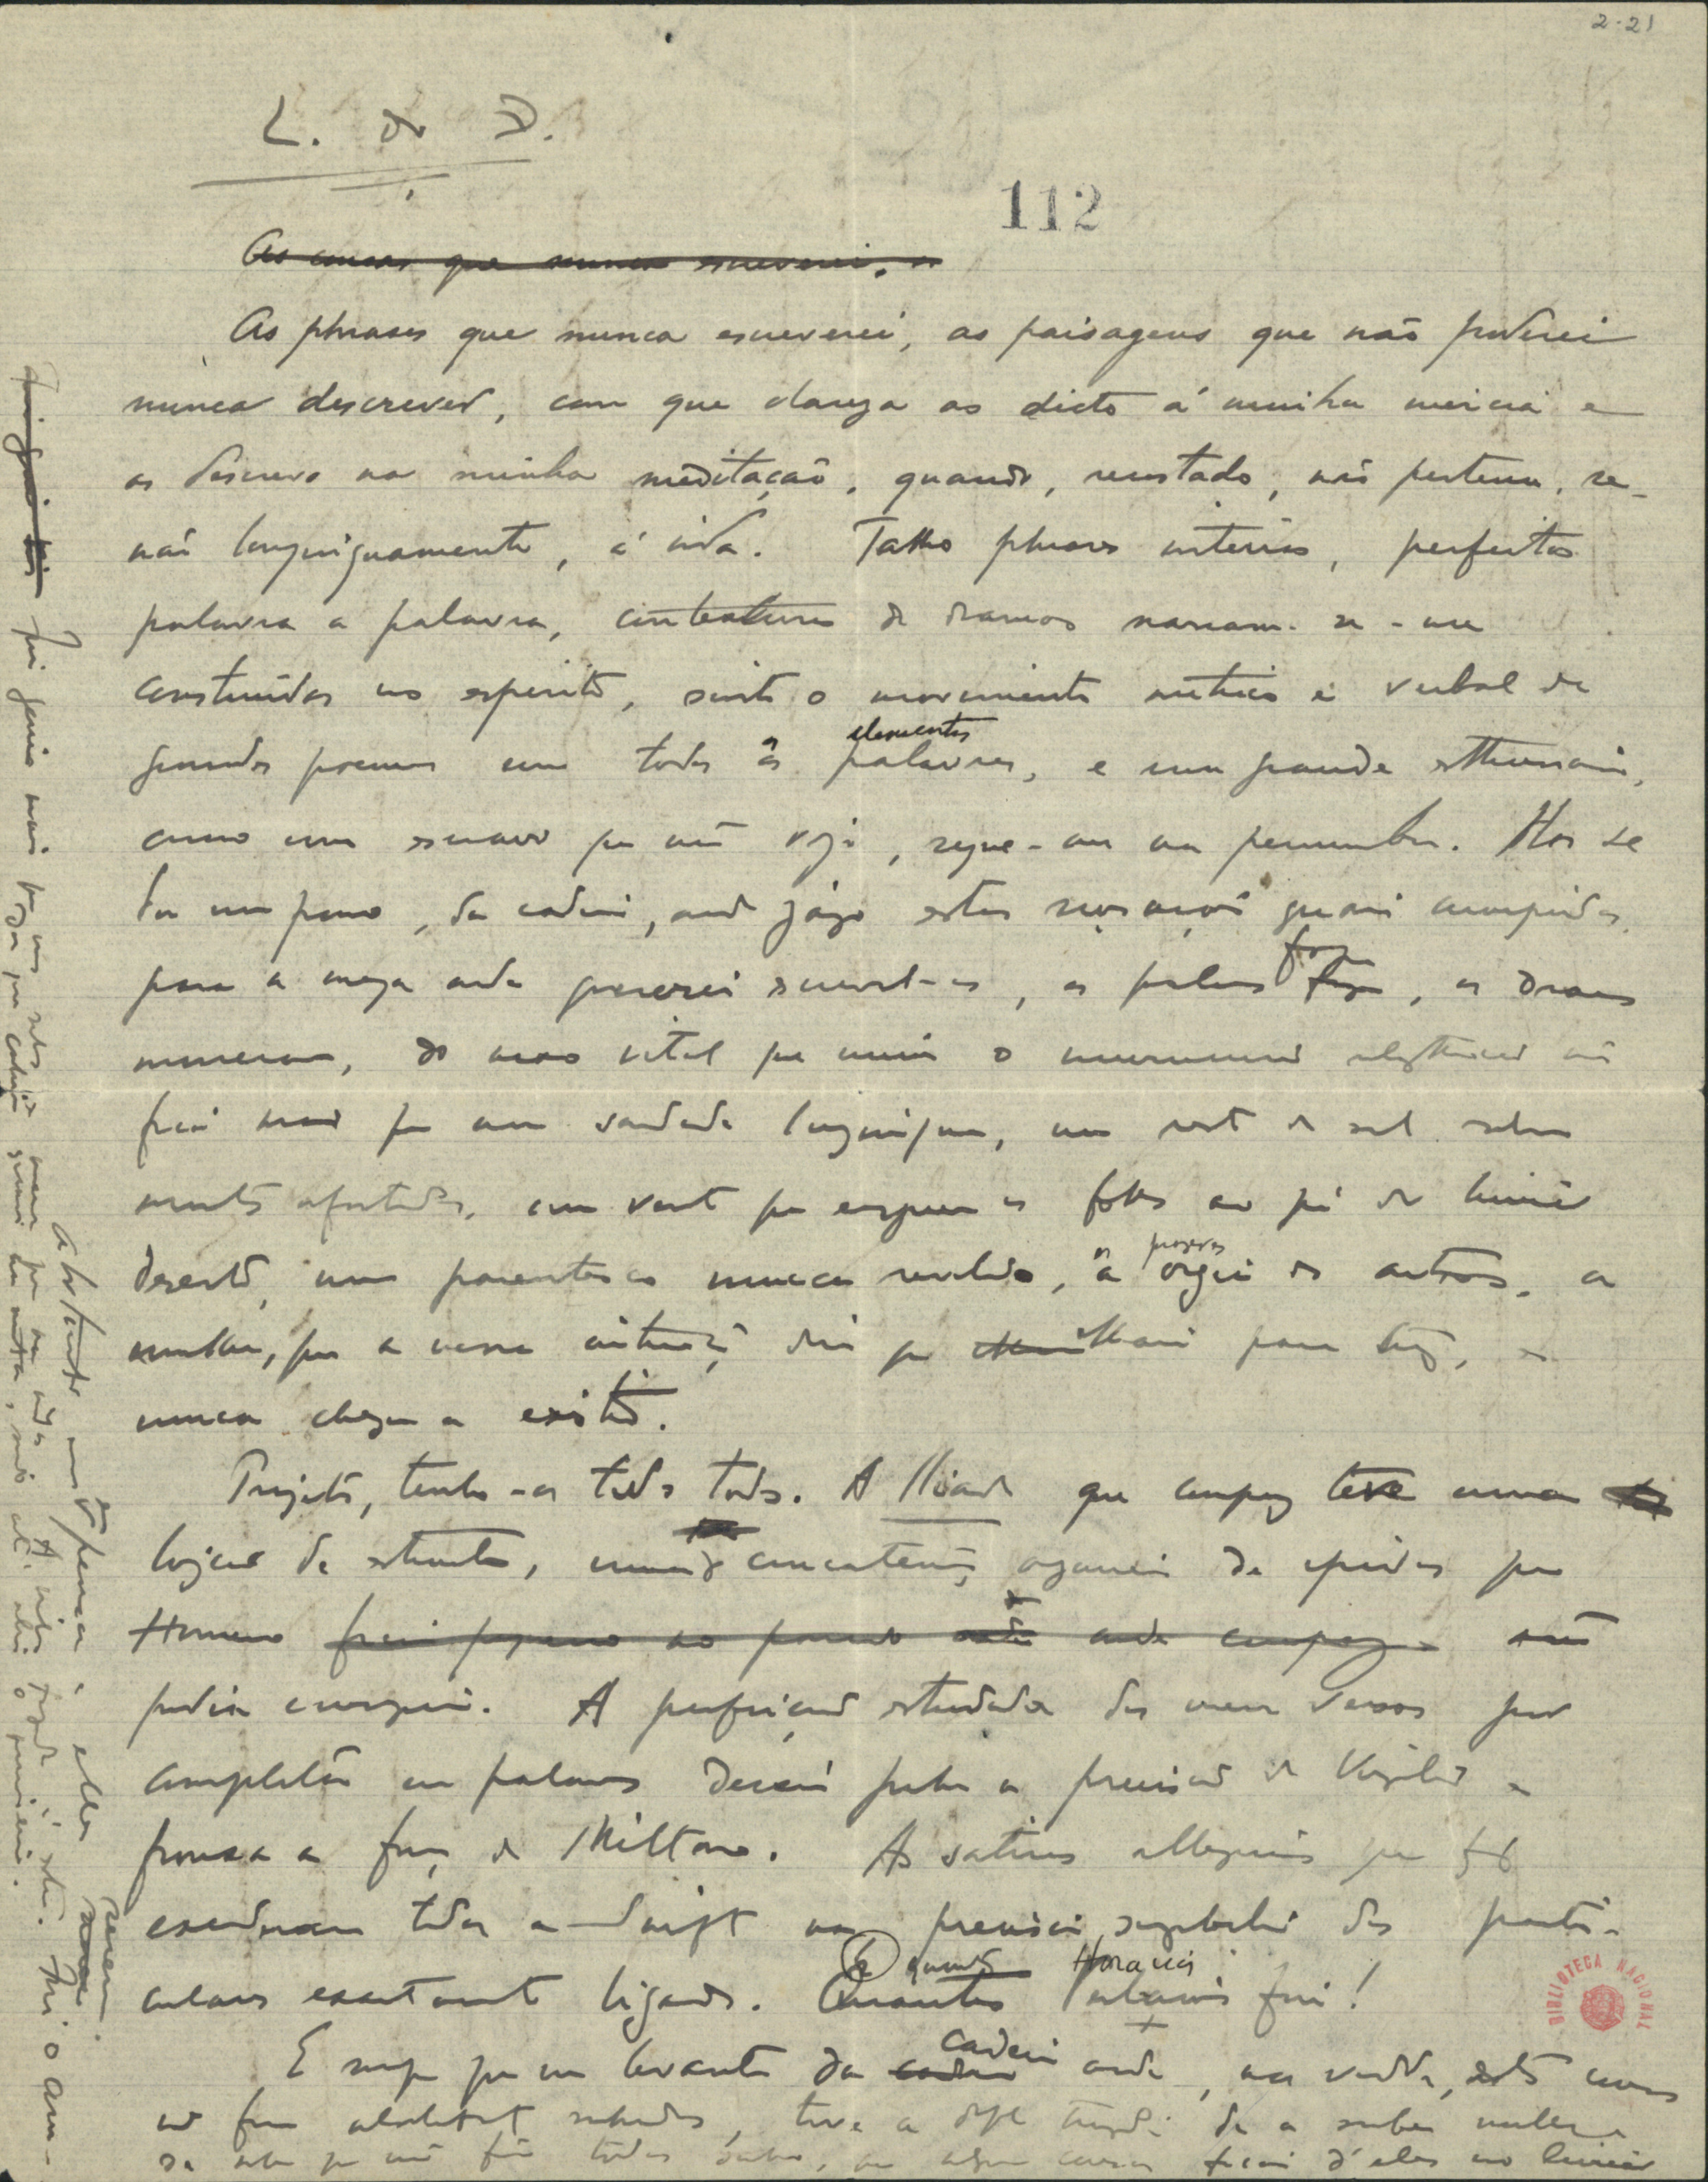 2-21
L. do D.
112
As cousas que nunca escreverei, as
As phrases que nunca escreverei, as paisagens que não poderei
nunca descrever, com que clareza as dicto á minha inercia e
as descrevo na minha meditação, quando, recostado, não pertenço, se-
não longinquamente, á vida. Talho phrases inteiras, perfeitas
palavra a palavra, contexturas de dramas narram-se-me
construidas no espirito, sinto o movimento metrico e verbal de
grandes poemas em todas as palavras, e um grande enthusiasmo,
elementos
como um escravo que não vejo, segue-me na penumbra. Mas se
der um passo, da cadeira, onde jazo estas sensações quasi cumpridas,
para a mesa onde quererei escrevel-as, as palavras fogem, os dramas
morrem, do nexo vital que uniu o murmurio rhythmico não
fica mais que uma saudade longinqua, um resto de sol sobre
montes afastados, um vento que ergue as folhas ao pé do limiar
deserto, um parentesco nunca revelado, a orgia dos outros, a
os prazeres
mulher, que a nossa intuição diz que olharia para traz, e
nunca chega a existir.
Projectos, tenho-os tido todos. A Iliada que compuz teve uma
logica de estructura, uma concatenação organica de epodos que
Homero não
podia conseguir. A perfeição estudada dos meus versos por
completar em palavras deixa pobre a precisão de Virgilio e
frouxa a força de Milton. As satiras allegoricas que fiz
excederam todas a Swift na precisão symbolica dos parti-
culares exactamente ligados. Quantos Verlaines fui!
Horacios
E sempre que me levanto da cadeira onde, na verdade, estas cousas
não foram absolutamente sonhadas, tive a dupla tragedia de as saber nullas e
de saber que não foram todas sonho, que alguma cousa ficou d'ellas no limiar
abstracto em eu pensar e ellas serem.
Fui genio mais que nos sonhos e menos que na vida. A minha tragedia é esta. Fui o
BIBLIOTECA NACIONAL